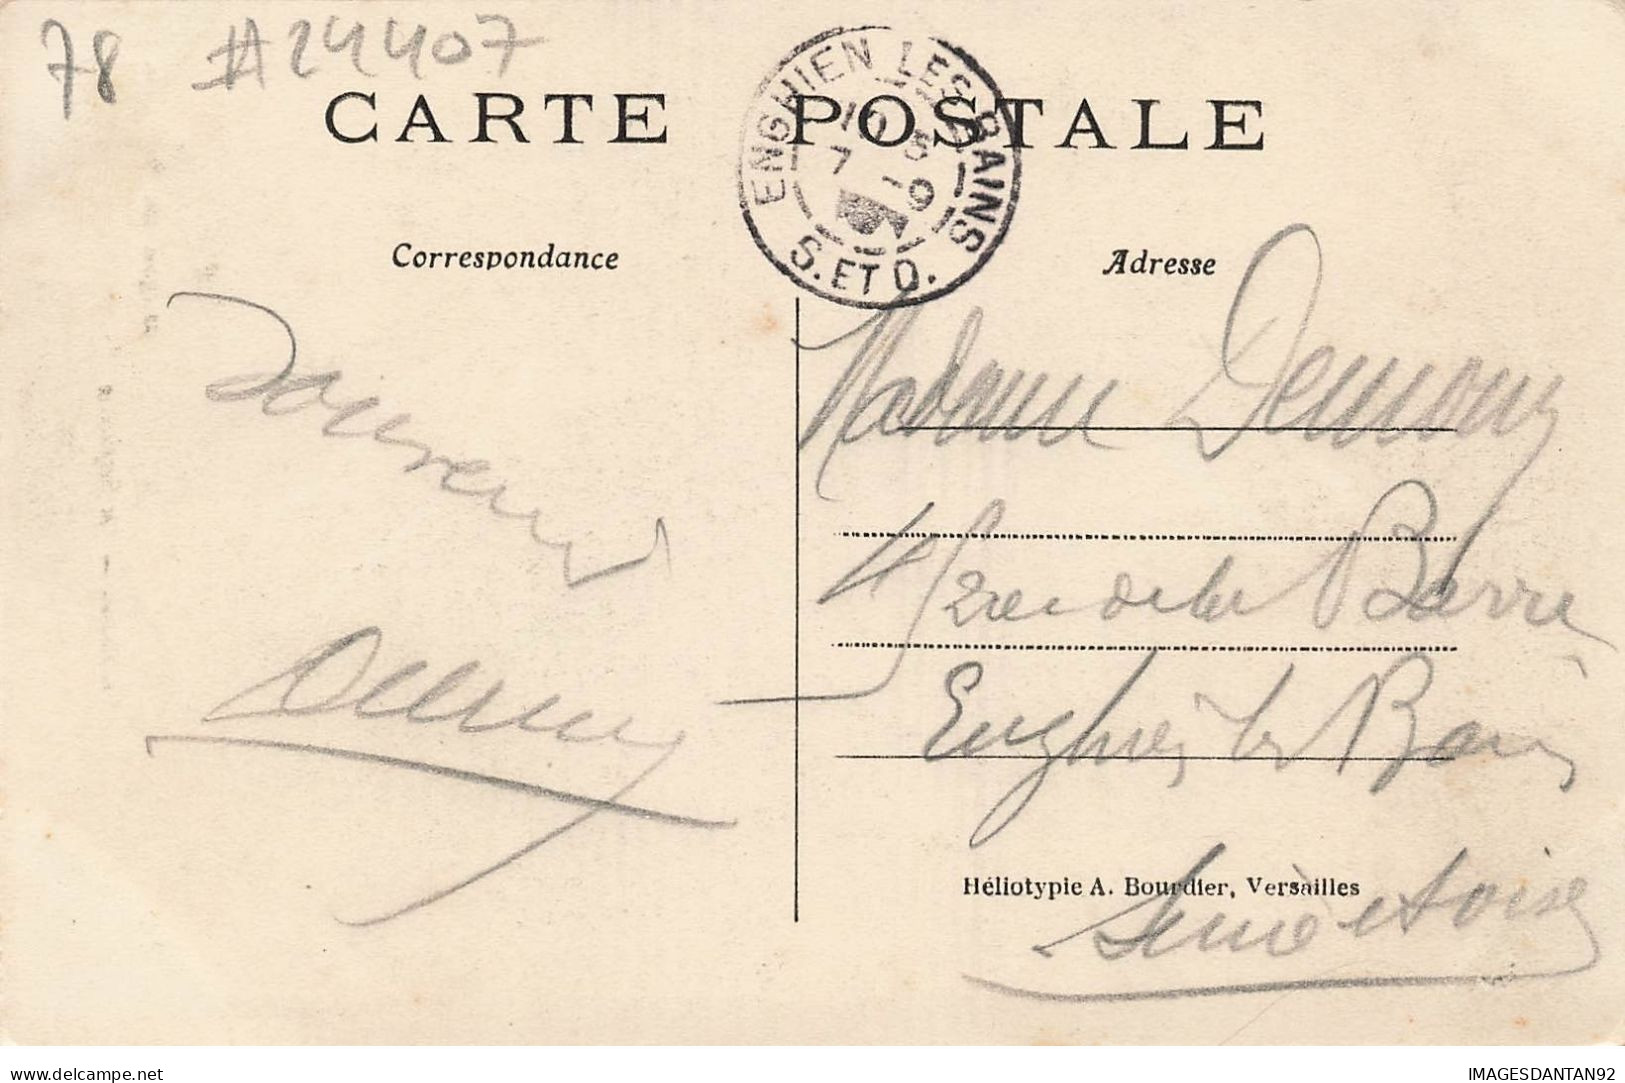 78 #24407
CARTE POSTALE
ENGHIEN LES BAINS
10 5
7 -9
S. ET O.
Correspondance
Adresse
Madame
4 rue de la Barre
Enghien les Bains
Héliotypie A. Bourdier, Versailles
Seine et Oise
delcampe.net
IMAGESDANTAN92